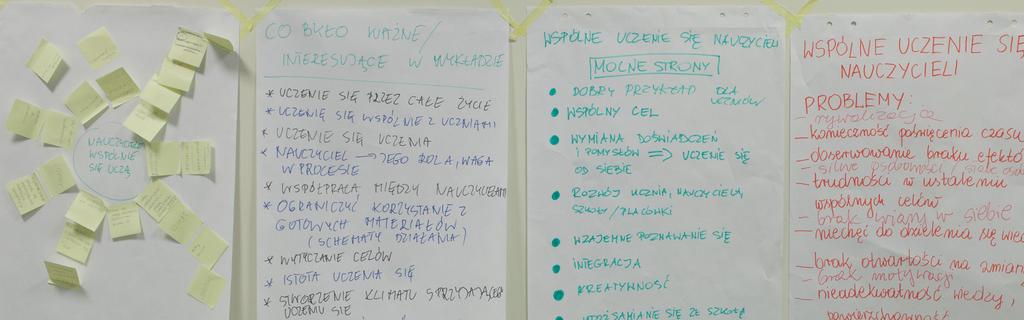 NAUCZYCIELE
WSPÓLNIE
SIĘ UCZĄ
CO BYŁO WAŻNE/
INTERESUJĄCE W WYKŁADZIE
* UCZENIE SIĘ PRZEZ CAŁE ŻYCIE
* UCZENIE SIĘ WSPÓLNIE Z UCZNIAMI
* UCZENIE SIĘ UCZENIA
* NAUCZYCIEL → JEGO ROLA, WAGA
W PROCESIE
* WSPÓŁPRACA MIĘDZY NAUCZYCIELAMI
* OGRANICZYĆ KORZYSTANIE Z
GOTOWYCH MATERIAŁÓW
(SCHEMATY DZIAŁANIA)
* WYTYCZANIE CELÓW
* ISTOTA UCZENIA SIĘ
* STWORZENIE KLIMATU SPRZYJAJĄCEGO
UCZENIU SIĘ
WSPÓLNE UCZENIE SIĘ NAUCZYCIELI
MOCNE STRONY
• DOBRY PRZYKŁAD DLA
UCZNIÓW
• WSPÓLNY CEL
• WYMIANA DOŚWIADCZEŃ
I POMYSŁÓW => UCZENIE SIĘ
OD SIEBIE
• ROZWÓJ UCZNIA, NAUCZYCIELA,
SZKOŁY/PLACÓWKI
• WZAJEMNE POZNAWANIE SIĘ
• INTEGRACJA
• KREATYWNOŚĆ
• UTOŻSAMIANIE SIĘ ZE SZKOŁĄ
WSPÓLNE UCZENIE SIĘ
NAUCZYCIELI
PROBLEMY:
– rywalizacja
– konieczność poświęcenia czasu
– doserwowanie braku efektów
– silne osobowości
– trudności w ustaleniu
wspólnych celów
– brak wiary w siebie
– niechęć do dzielenia się
– brak otwartości na zmiany
– brak motywacji
– nieadekwatność wiedzy,
powierzchowność